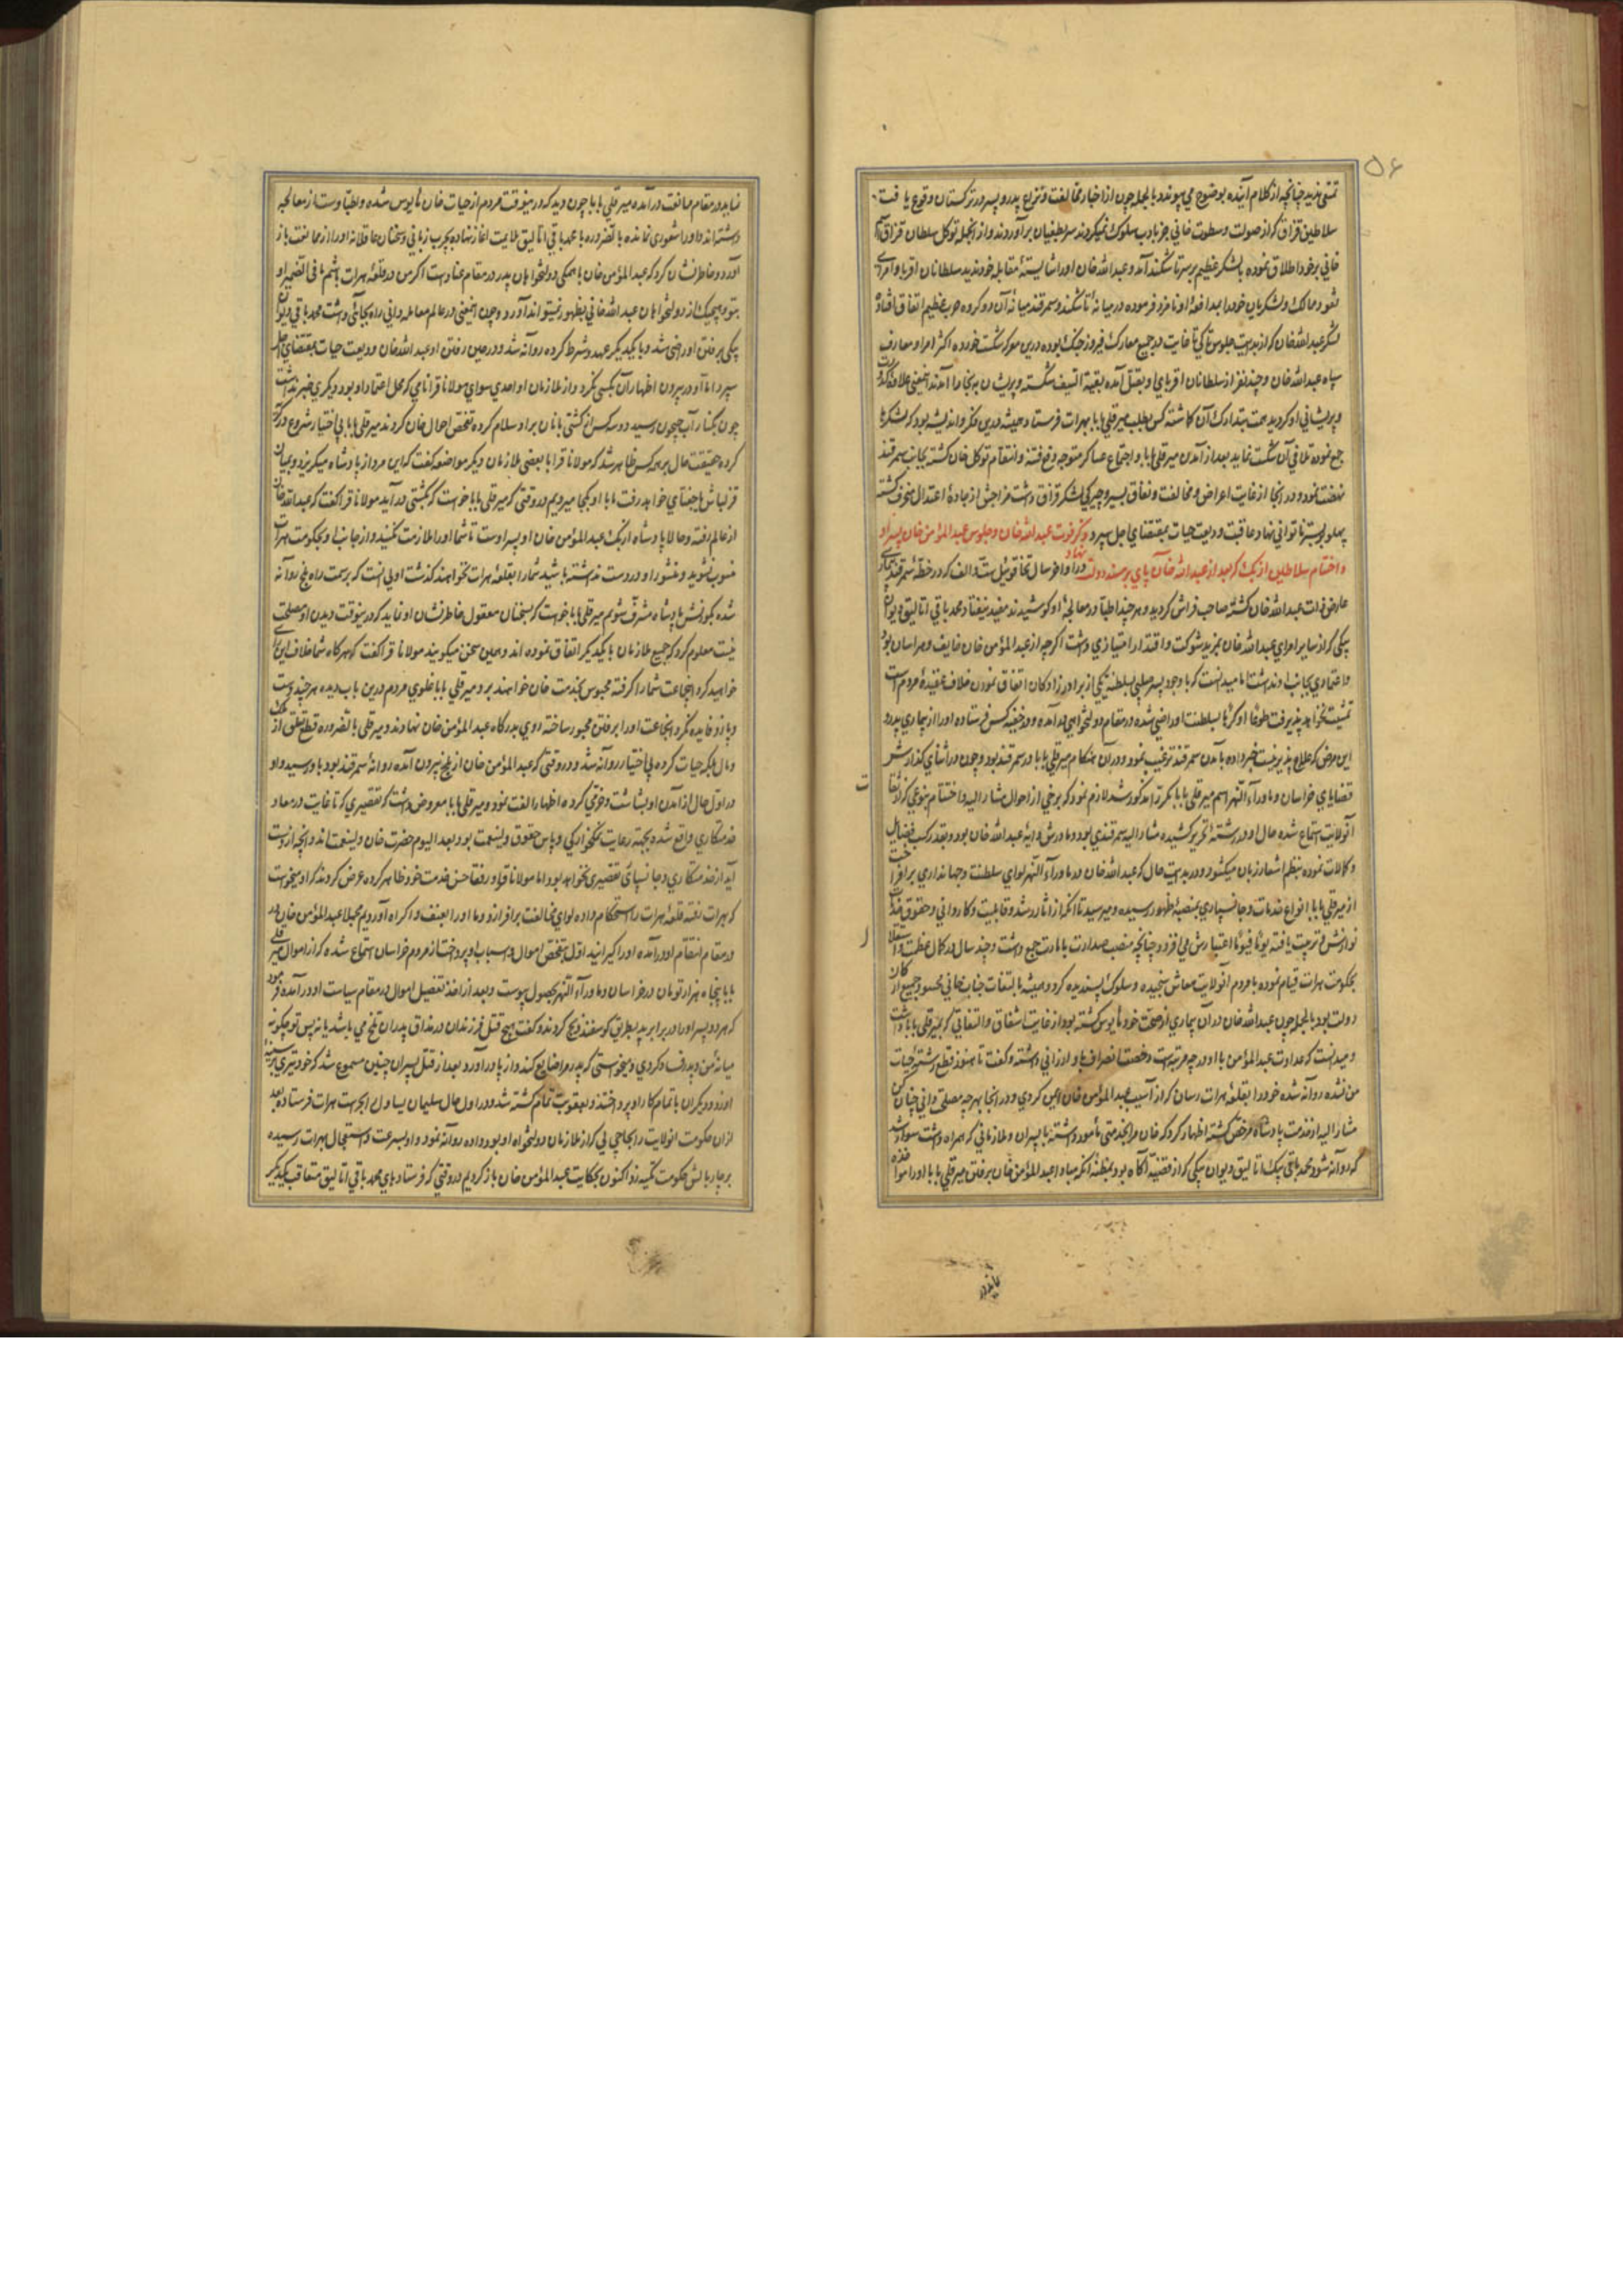 ۵۶
تمشی پذیرد چنانچه از کلام آینده بوضوح می پیوندد بالجمله چون از اخبار مخالفت و نزاع پدر و پسر در ترکستان وقوع یافت
سلاطین قزاق که از صولت و سطوت خانی جز بادب سلوک نمیکردند سر بطغیان برآوردند و از آنجمله توکل سلطان قزاق اسم
خانی بر خود اطلاق نموده با لشکر عظیم بر سر تاشکند آمد و عبدالله خان او را شایستهٔ مقابله خود ندیده سلطانان اقربا و امرای
ثغور و ممالک و لشکریان خود را بمدافعهٔ او نامزد فرموده در میانهٔ تاشکند و سمرقند میانهٔ آن دو گروه حرب عظیم اتفاق افتاد
لشکر عبدالله خان که از بدایت جلوس تا غایت در جمیع معارک فیروز جنگ بوده درین معرکه شکست خورده اکثر امرا و معارف
سپاه عبدالله خان و چند نفر از سلطانان اقربای او بقتل آمده بقیة السیف شکسته و پریشان به بخارا آمدند اینمعنی علاوهٔ کدورت
و پریشانی او گردید همت بتدارک آن گماشته کس بطلب میر قلی بابا بهرات فرستاد و همیشه درین فکر و اندیشه بود که لشکرها
جمع نموده تلافی آن شکست نماید بعد از آمدن میر قلی بابا و اجتماع عساکر متوجه دفع فتنه و انتقام توکل خان گشته بجانب سمرقند
نهضت نمود و در آنجا از غایت اعراض و مخالفت و نفاق پسر و چیرگی لشکر قزاق دشت مزاجش از جادهٔ اعتدال منحرف گشته
پهلو بر بستر ناتوانی نهاد و عاقبت ودیعت حیات بمقتضای اجل سپرد ذکر فوت عبدالله خان و جلوس عبدالمؤمن خان پسر او
و اختتام سلاطین ازبک که بعد از عبدالله خان پای بر مسند دولت نهاد در اواخر سال تخاقوی ئیل ست و الف که در خطهٔ سمرقند بیماری
عارض ذات عبدالله خان گشته صاحب فراش گردید و هر چند اطبا در معالجهٔ او کوشیدند مفید نیفتاد محمد باقی اتالیق دیوان
بیگی که از سایر امرای عبدالله خان بمزید شوکت و اقتدار امتیازی داشت اگرچه از عبدالمؤمن خان خایف و هراسان بود
و اعتمادی بجانب او نداشت اما میدانست که با وجود پسر صلبی بسلطنه یکی از برادرزادگان اتفاق نمودن خلاف عقیدهٔ مردم است
تمشیت نخواهد پذیرفت طوعا او کرها بسلطنت او راضی شده در مقام دولتخواهی درآمده و در خفیه کس فرستاده او را از بیماری پدر و
این مرض که علاج پذیر نیست خبر داده بآمدن سمرقند ترغیب نمود و در آن هنگام میر قلی بابا در سمرقند بود و چون در اثنای گذارش
قضایای خراسان و ماوراء النهر اسم میر قلی بابا مکرر مذکور شد لازم نمود که برخی از احوال مشار الیه و اختتام بنوعی که از ثقات
آنولایت استماع شده حال او در رشتهٔ تحریر کشیده مشار الیه سمرقندی بود و مادرش دایهٔ عبدالله خان بود و بقدر کسب فضایل
و کمالات نموده بنظم اشعار زبان میگشود و در بدایت حال که عبدالله خان در ماوراء النهر لوای سلطنت و جهانداری برافراخت
از میر قلی بابا انواع خدمات و جانسپاری بمنصهٔ ظهور رسیده و میرسید تا آنکه از آثار رشد و قابلیت و کاردانی و حقوق خدمت
نوازش و تربیت یافته یوما فیوما اعتبارش می افزود چنانچه منصب صدارت با امارت جمع داشت و چند سال در کمال عظمت و استقلال
بحکومت هرات قیام نموده با مردم آنولایت معاش سنجیده و سلوک پسندیده کرد و همیشه بالتفات جناب خانی محسود جمیع ارکان
دولت بود بالجمله چون عبدالله خان در آن بیماری از صحت خود مأیوس گشته بود از غایت اشفاق و التفاتی که بمیر قلی بابا داشت
و میدانست که عداوت عبدالمؤمن با او در چه مرتبه است رخصت انصراف باو ارزانی داشته و گفت تا هنوز قطع رشتهٔ حیات
من نشده روانه شده خود را بقلعهٔ هرات رسان که از آسیب عبدالمؤمن خان ایمن گردی و در آنجا بهر چه مصلحت دانی چنان کن
مشار الیه از خدمت پادشاه مرخص گشته اظهار کرد که خان مرا بخدمتی مأمور داشته با پسران و ملازمانی که همراه داشت سوار شد
که روانه شود محمد باقی بیک اتالیق دیوان بیگی که از قضیه آگاه بود بمظنهٔ آنکه مبادا عبدالمؤمن خان بر فتن میر قلی بابا او را مؤاخذه
نماید در مقام ممانعت درآمده میر قلی بابا چون دید که در ینوقت مردم از حیات خان مأیوس شده و اطبا دست از معالجه
داشته اند و او را شعوری نمانده بالضروره با محمد باقی اتالیق ملایمت آغاز نهاده بچرب زبانی و سخنان عاقلانه او را از ممانعت باز
آورد و خاطرنشان کرد که عبدالمؤمن خان با همگی دولتخواهان پدر در مقام عناد است اگر من در قلعهٔ هرات باشم ما فی الضمیر او
بتو و هیچیک از دولتخواهان عبدالله خانی بظهور نمیتواند آورد و چون اینمعنی در عالم معامله دانی راه بجائی داشت محمد باقی دیوان
بیگی برفتن او راضی شد و با یکدیگر عهد و شرط کرده روانه شد و در حین رفتن او عبدالله خان ودیعت حیات بمقتضای اجل
سپرد اما او در بیرون اظهار آن بکسی نکرد و از ملازمان او احدی سوای مولانا قرا نامی که محل اعتماد او بود دیگری خبر نداشت
چون بکنار آب جیحون رسید دو سه کس از کشتی بانان برو سلام کرده تفحص احوال خان کردند میر قلی بابا بی اختیار شروع در گریه
کرده حقیقت حال بر همه کس ظاهر شد که مولانا قرا با بعضی ملازمان دیگر مواضعه کفت که این مرد از پادشاه میگریزد و بمیان
قزلباش یا جغتای خواهد رفت ما با او کجا میرویم در وقتی که میر قلی بابا خواست که بکشتی درآید مولانا قرا گفت که عبدالله خان
از عالم رفته و حالا پادشاه ازبک عبدالمؤمن خان او پسر اوست تا شما او را ملازمت نکنید و از جانب او بحکومت هرات
منسوب نشوید و منشور او در دست نداشته باشید شما را بقلعهٔ هرات نخواهند گذشت اولی انست که بر سمت راه بلخ روانه
شده بکورنش پادشاه مشرف شویم میر قلی بابا خواست که بسخنان معقول خاطرنشان او نماید که در ینوقت دیدن او مصلحت
نیست معلوم کرد که جمیع ملازمان با یکدیگر اتفاق نموده اند و همین سخن میگویند مولانا قرا گفت که هرگاه شما خلاف این رای
خواهید کرد اینجماعت شما را گرفته محبوس بخدمت خان خواهند برد میر قلی بابا غلوی مردم درین باب دیده هر چند دست
و پا زد فایده نکرد آنجماعت او را برفتن مجبور ساخته روی بدرگاه عبدالمؤمن خان نهادند و میر قلی بالضروره قطع تعلق از ملک
و مال بلکه حیات کرده بی اختیار روانه شد و در وقتی که عبدالمؤمن خان از بلخ بیرون آمده روانهٔ سمرقند بود باو رسید و او
در اول حال از آمدن او بشاشت و خرمی کرده اظهار الفت نمود و میر قلی بابا معروض داشت که تقصیری که تا غایت در معاد
خدمتکاری واقع شد بجهته رعایت نمکخوارگی و پاس حقوق ولینعمت بود و بعد الیوم حضرت خان ولینعمت اند و آنچه از دست
آید از خدمتکاری و جانسپای تقصیری نخواهد بود اما مولانا قرا و رفقا حسن خدمت خود ظاهر کرده عرض کردند که او میخواست
که بهرات رفته قلعهٔ هرات را استحکام داده لوای مخالفت برافرازد و ما او را بعنف و اکراه آوردیم مجملا عبدالمؤمن خان در
در مقام انتقام او درآمده او را گیرانید اول بتفحص اموال و اسباب او پرداخت از مردم خراسان استماع شده که از اموال میر قلی
بابا پنجاه هزار تومان در خراسان و ماوراء النهر بحصول پیوست و بعد از اخذ تفصیل اموال در مقام سیاست او درآمده فرمود
که هر دو پسر او را در برابر پدر بطریق گوسفند ذبح کردند و گفت هیچ قتل فرزندان در مذاق پدران تلخ می باشد یا نه پس تو چگونه
میانهٔ من و پدر فساد کردی و میخواستی که پدر مرا ضایع کند و از پا درآورد بعد از قتل پسران چنین مسموع شد که خود تیری بر سینهٔ
او زد و دیگران با تمام کار او پرداختند و بعقوبت تمام کشته شد و در اول حال سلیمان یساول را بجهت هرات فرستاده بعد
از ان حکومت آنولایت را بحاجی بی که از ملازمان دولتخواه او بود داده روانه نمود و او بسرعت و استعجال بهرات رسیده
بر چار بالش حکومت تکیه زد اکنون بحکایت عبدالمؤمن خان باز گردیم در وقتی که فرستادهای محمد باقی اتالیق متعاقب یکدیگر